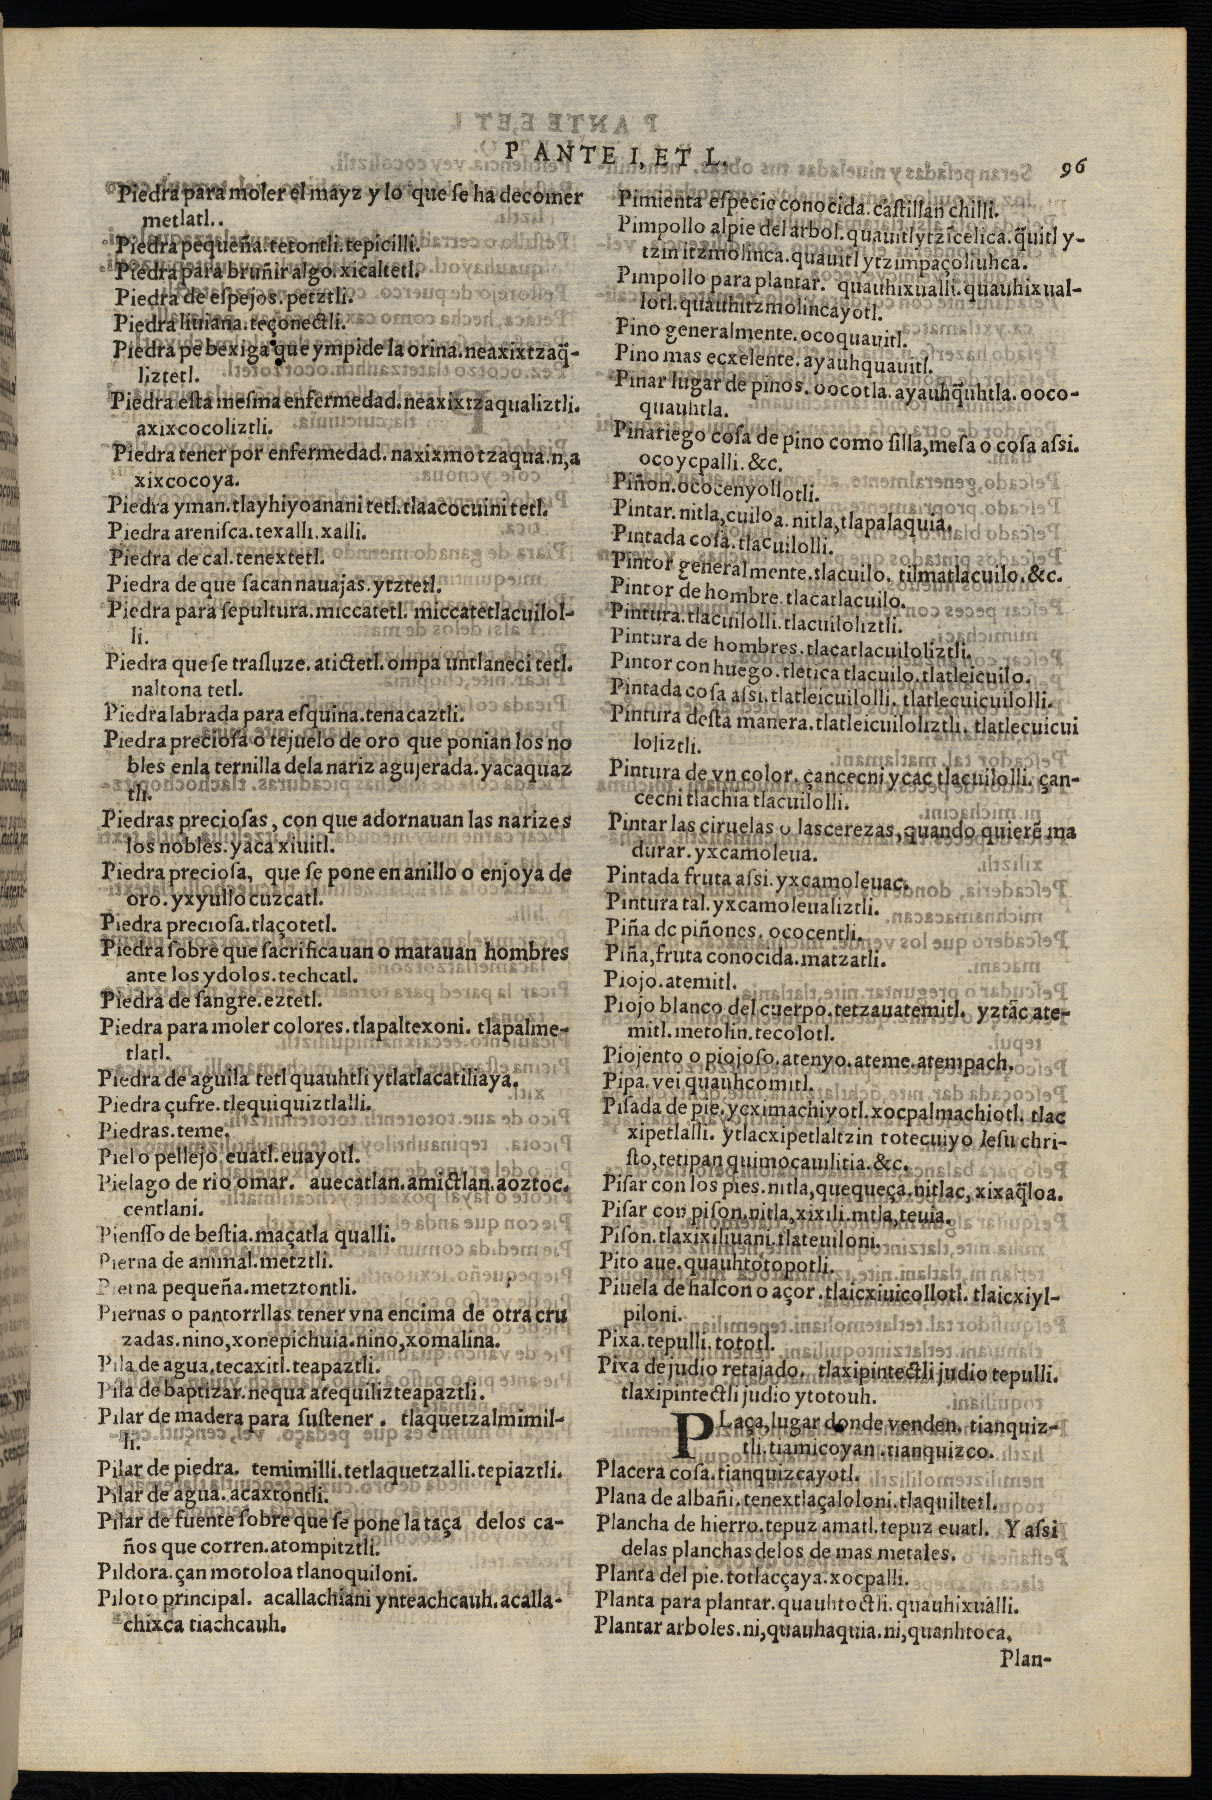 P ANTE I, ET L.
96
Piedra para moler el mayz y lo que ſe ha decomer
metlatl..
Piedra pequeña.tetontli.tepicilli.
Piedra para bruñir algo.xicaltetl.
Piedra de eſpejos.petztli.
Piedra liuiana.teçonectli.
Piedra pe bexiga que ympide la orina.neaxixtzaq̃-
liztetl.
Piedra eſta meſma enfermedad.neaxixtzaqualiztli.
axixcocoliztli.
Piedra tener por enfermedad.naxixmotzaqua.n,a
xixcocoya.
Piedra yman.tlayhiyoanani tetl.tlaacocuini tetl.
Piedra areniſca.texalli.xalli.
Piedra de cal.tenextetl.
Piedra de que ſacan nauajas.ytztetl.
Piedra para ſepultura.miccatetl. miccatetlacuilol-
li.
Piedra que ſe traſluze. atictetl.ompa untlaneci tetl.
naltona tetl.
Piedra labrada para eſquina.tenacaztli.
Piedra precioſa o tejuelo de oro que ponian los no
bles enla ternilla dela nariz agujerada.yacaquaz
tli.
Piedras precioſas, con que adornauan las narizes
los nobles.yaca xiuitl.
Piedra precioſa, que ſe pone en anillo o enjoya de
oro.yxyullocuzcatl.
Piedra precioſa.tlaçotetl.
Piedra ſobre que ſacrificauan o matauan hombres
ante los ydolos.techcatl.
Piedra de ſangre.eztetl.
Piedra para moler colores.tlapaltexoni. tlapalme-
tlatl.
Piedra de aguila tetl quauhtli ytlatlacatiliaya.
Piedra çufre.tlequiquiztlalli.
Piedras.teme.
Piel o pellejo.euatl.euayotl.
Pielago de rio omar. auecatlan.amictlan.aoztoc.
centlani.
Pienſſo de beſtia.maçatla qualli.
Pierna de animal.metztli.
Pierna pequeña.metztontli.
Piernas o pantorrllas tener vna encima de otra cru
zadas.nino,xonepichuia.nino,xomalina.
Pila de agua.tecaxitl.teapaztli.
Pila de baptizar.nequa atequilizteapaztli.
Pilar de madera para ſuſtener . tlaquetzalmimil-
li.
Pilar de piedra. temimilli.tetlaquetzalli.tepiaztli.
Pilar de agua.acaxtontli.
Pilar de fuente ſobre que ſe pone la taça delos ca-
ños que corren.atompitztli.
Pildora.çan motoloa tlanoquiloni.
Piloto principal. acallachiani ynteachcauh.acalla-
chixca tiachcauh.
Pimienta eſpecie conocida.caſtillan chilli.
Pimpollo alpie del arbol.quauitlytzĩcelica.q̃uitl y-
tzin itzmolinca.quauitl ytzimpaçoliuhca.
Pimpollo para plantar. quauhixualli.quauhixual-
lotl.quauhitzmolincayotl.
Pino generalmente.ocoquauitl.
Pino mas ecxelente.ayauhquauitl.
Pinar lugar de pinos.oocotla.ayauhq̃uhtla.ooco-
quauhtla.
Pinariego coſa de pino como ſilla,meſa o coſa aſsi.
ocoycpalli.&c.
Piñon.ococenyollotli.
Pintar.nitla,cuiloa.nitla,tlapalaquia.
Pintada coſa.tlacuilolli.
Pintor generalmente.tlacuilo. tilmatlacuilo.&c.
Pintor de hombre.tlacatlacuilo.
Pintura.tlacuilolli.tlacuiloliztli.
Pintura de hombres.tlacatlacuiloliztli.
Pintor con huego.tletica tlacuilo.tlatleicuilo.
Pintada coſa aſsi.tlatleicuilolli. tlatlecuicuilolli.
Pintura deſta manera.tlatleicuiloliztli. tlatlecuicui
loliztli.
Pintura de vn color. çancecni ycac tlacuilolli. çan-
cecni tlachia tlacuilolli.
Pintar las ciruelas o lascerezas,quando quierẽ ma
durar.yxcamoleua.
Pintada fruta aſsi.yxcamoleuac.
Pintura tal.yxcamoleualiztli.
Piña de piñones.ococentli.
Piña,fruta conocida.matzatli.
Piojo.atemitl.
Piojo blanco del cuerpo.tetzauatemitl. yztãc ate-
mitl.metolin.tecolotl.
Piojento o piojoſo.atenyo.ateme.atempach.
Pipa.vei quauhcomitl.
Piſada de pie.ycximachiyotl.xocpalmachiotl. tlac
xipetlalli. ytlacxipetlaltzin totecuiyo Ieſu chri-
ſto,tetipan quimocauilitia.&c.
Piſar con los pies.nitla,quequeça.nitlac,xixaq̃loa.
Piſar con piſon.nitla,xixili.nitla,teuia.
Piſon.tlaxixiliuani.tlateuiloni.
Pito aue.quauhtotopotli.
Piuela de halcon o açor.tlaicxiuicollotl.tlaicxiyl-
piloni.
Pixa.tepulli.tototl.
Pixa de judio retajado. tlaxipintectli judio tepulli.
tlaxipintectli judio ytotouh.
PLaça,lugar donde venden. tianquiz-
tli.tiamicoyan.tianquizco.
Placera coſa.tianquizcayotl.
Plana de albañi.tenextlaçaloloni.tlaquiltetl.
Plancha de hierro.tepuz amatl.tepuz euatl. Y aſsi
delas planchas delos de mas metales.
Planta del pie.totlacçaya.xocpalli.
Planta para plantar.quauhtoctli.quauhixualli.
Plantar arboles.ni,quauhaquia.ni,quanhtoca.
Plan-